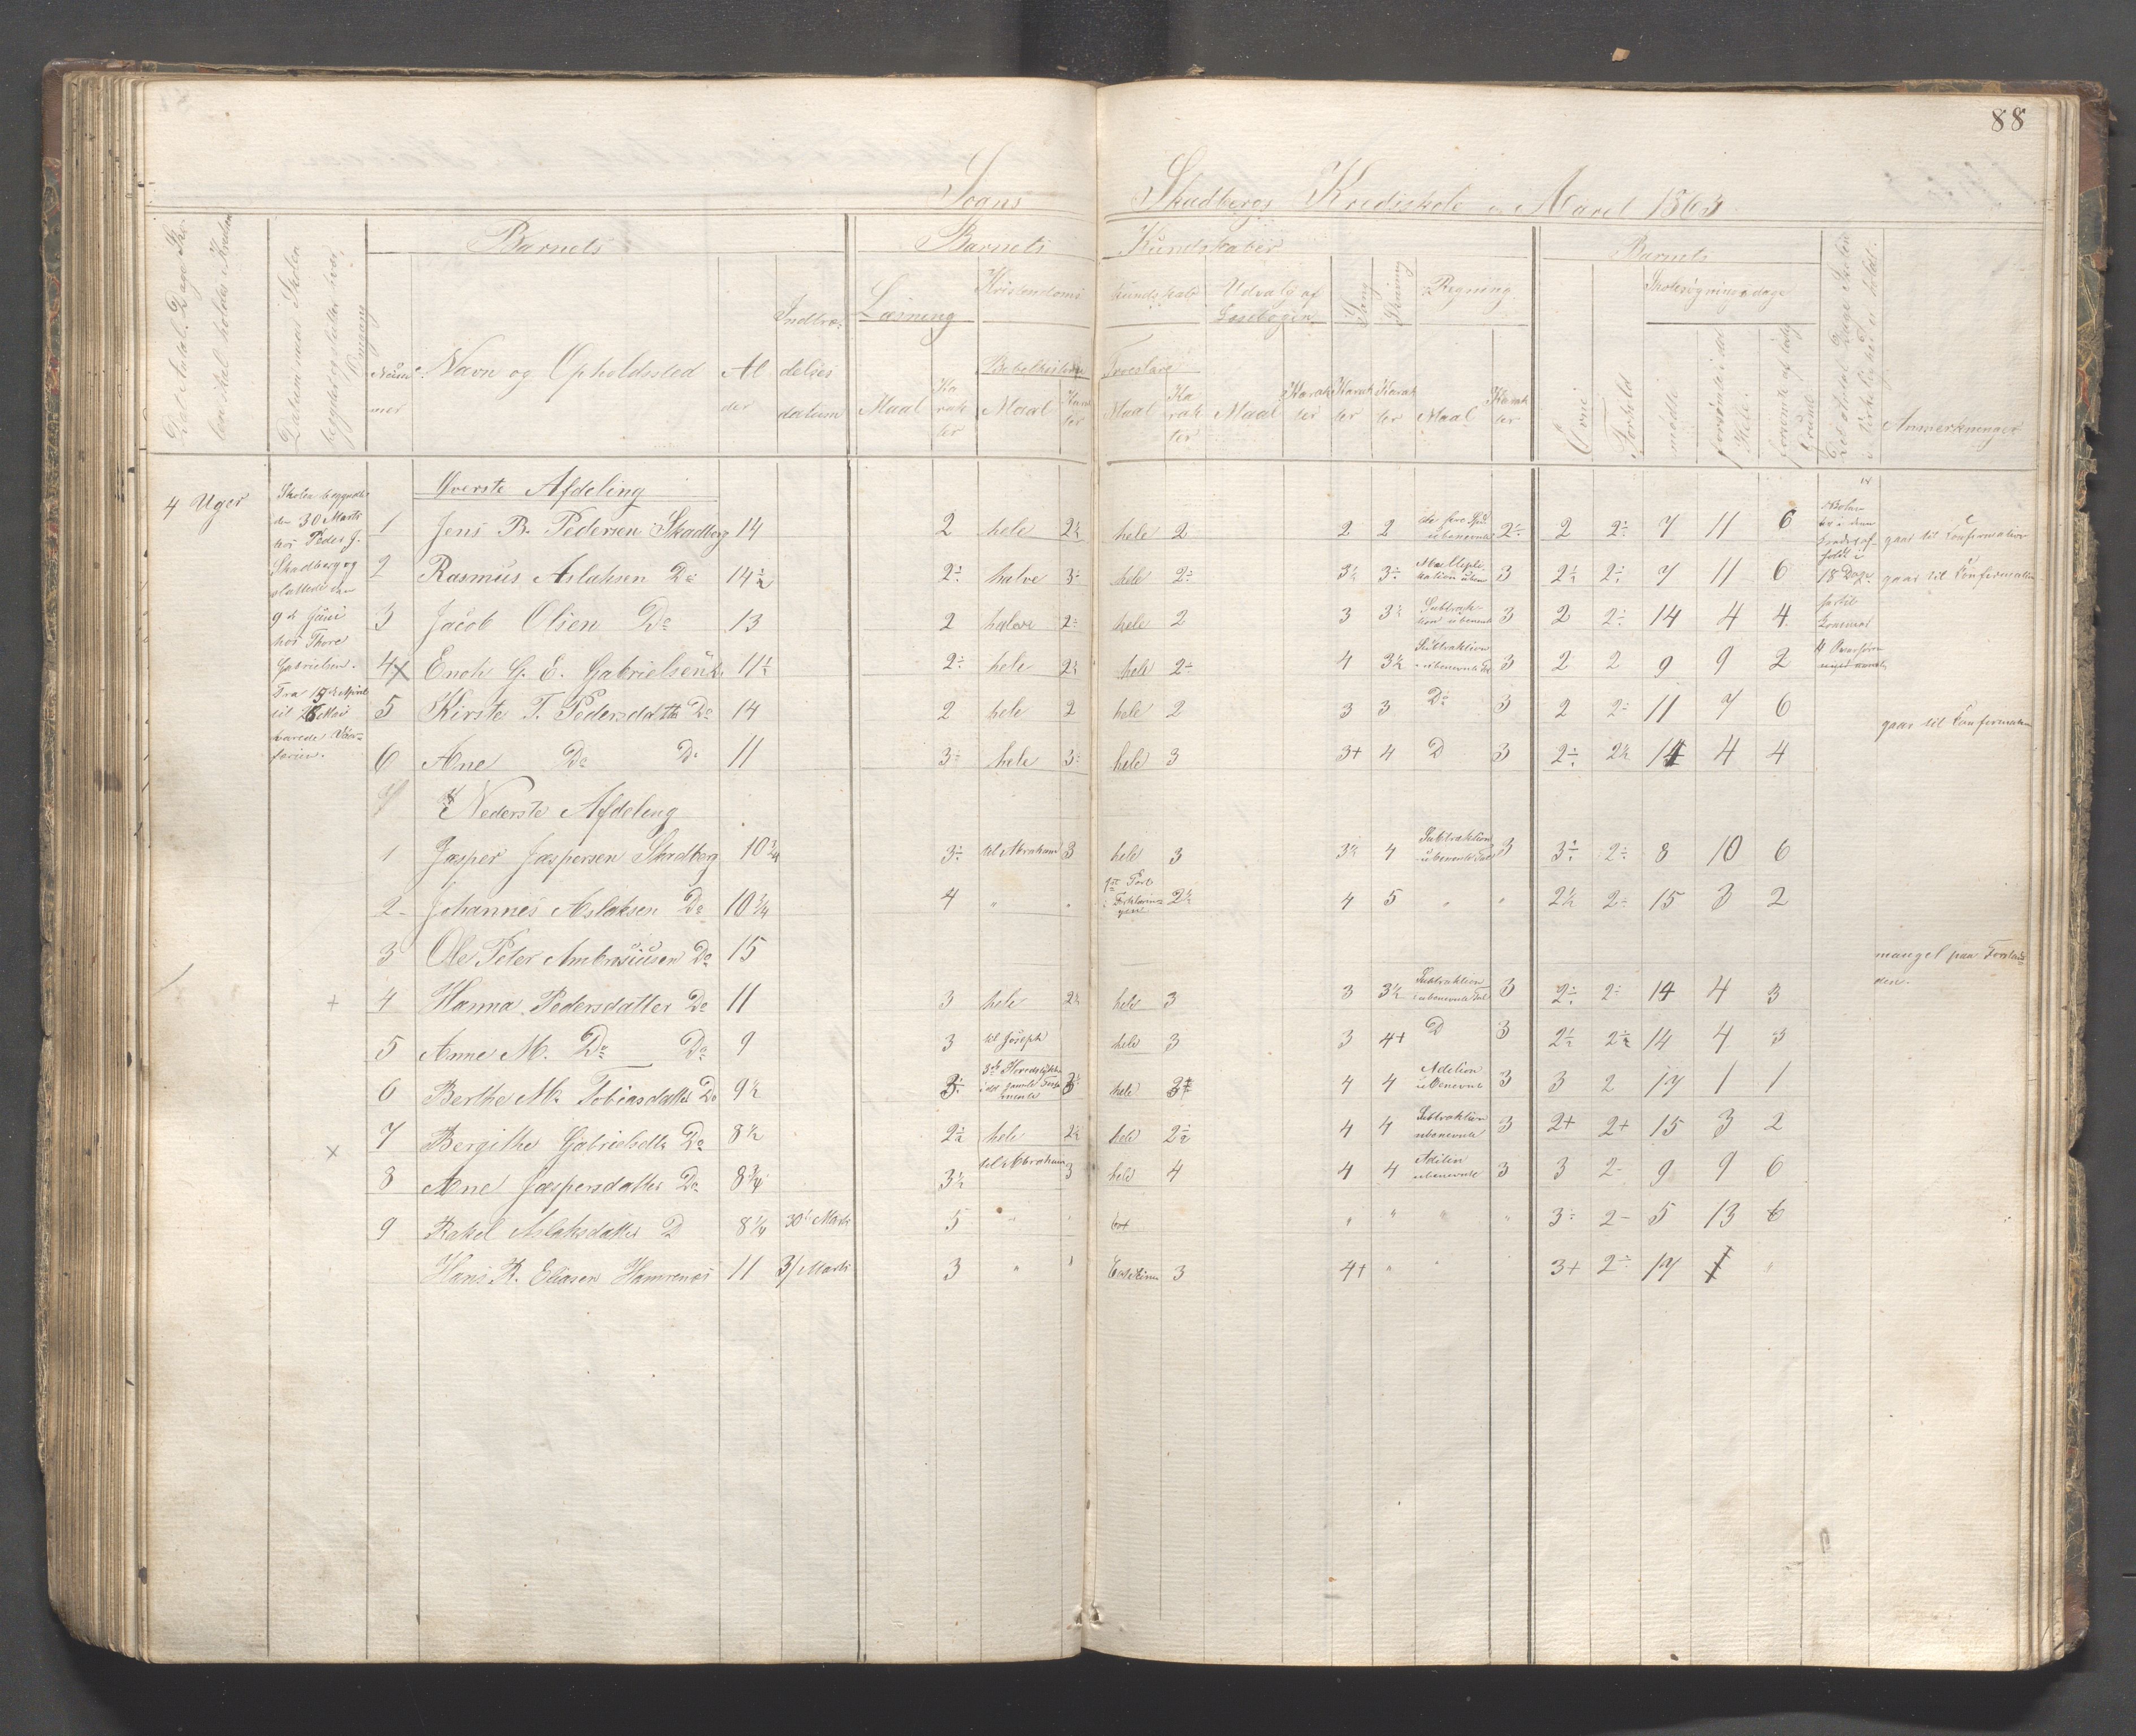 88
Svans Skadbergs Kredsskole i Aaret 1863
Barnets
Barnets Kundskaber
Barnets
Det Antal Dage Sko-
len skal holdes i Kredsen
Datum naar Skolen
begyndes og slutter hver
Omgang
Num-
mer
Navn og Opholdssted
Al
der
Indtræ-
delses
datum
Læsning
Maal
Ka
rak
ter
Kristendoms
Bibelhistorie
Maal
Karak
ter
kundskab
Troeslære
Maal
Ka
rak
ter
Udvalg af
Læsebogen
Maal
Karak
ter
Sang
Karak
ter
Skrivning
Karak
ter
Regning
Maal
Karak
ter
Evne
Forhold
Skolesøgningsdage
mødte
forsømte i det
Hele
forsømte af lovlig
Grund
Det Antal Dage Skolen
i Virkeligheden er holdt
Anmerkninger
4 Uger
Skolen begyndte
den 30 Marts
hos Peder J.
Skadberg og
sluttede den
9de Juni
hos Thore
Gabrielsen.
Fra 15de April
til 26 Mai
varede Vaar-
ferien.
Øverste Afdeling
1 Jens B. Pedersen Skadberg 14 2 hele 2½ hele 2 2 2 ubenevnte 2÷ 2 2÷ 7 11 6 gaar til Konfirmation
2 Rasmus Aslaksen Do 14½ 2÷ halve 3÷ hele 2÷ 3½ 3÷ Multipli-kation uben 3 2½ 2÷ 7 11 6 18 Dage gaar til Konfirmation
3 Jacob Olsen Do 13 2 halve 2÷ hele 2 3 3½ Subtrak-tion ubenevnte 3 2 2÷ 14 4 4
4 x Enoh G. E. Gabrielsen Do 11½ 2÷ hele 2½ hele 2÷ 4 3½ Subtraktion i ubenevnte Tal 3 2 2 9 9 2
5 Kirste T. Pedersdatter Do 14 2 hele 2 hele 2 3 3 Do 3 2 2÷ 11 7 6 gaar til Konfirmation
6 Ane Do Do 11 3÷ hele 3÷ hele 3 3+ 4 D 3 2÷ 2½ 14 4 4
Nederste Afdeling
1 Jæsper Jæspersen Skadberg 10¾ 3÷ til Abraham 3 hele 3 3½ 4 Subtraktion i ubenevnte Tal 3 3÷ 2÷ 8 10 6
2 Johannes Aslaksen Do 10¾ 4 " " 1ste Part i Forklaringen 2½ 4 5 " " 2½ 2÷ 15 3 2
3 Ole Peter Ambrosiusen Do 15 mangel paa Forstan-
den.
+ 4 Hanna Pedersdatter Do 11 3 hele 2½ hele 3 3 3½ Subtraktion i ubenevnte Tal 3 2÷ 2÷ 14 4 3
5 Anne M. Do Do 9 3 til Joseph hele 3 3 4+ D 3 2½ 2½ 14 4 3
6 Berthe M. Tobiasdatter Do 9½ 3÷ 3die Hovedstykke i det gamle Testamente hele 3 4 4 Adition ubenevnte 3 3 2 17 1 1
x 7 Bergithe Gabrielsdtr Do 8½ 2½ hele 2½ hele 2½ 4 4 Subtraktion ubenevnte 3 2+ 2+ 15 3 2
8 Ane Jæspersdatter Do 8¾ 3½ til Abraham 3 hele 4 4 4 Adition ubenevnte 3 3 2- 9 9 6
9 Rakel Aslaksdatter D 8¼ 30te Marts 5 " " " " " " 3÷ 2- 5 13 6
Hans R. Eliasen Hamrenes 11 31 Marts 3 " " 3 4+ " " 3+ 2÷ 17 1 "